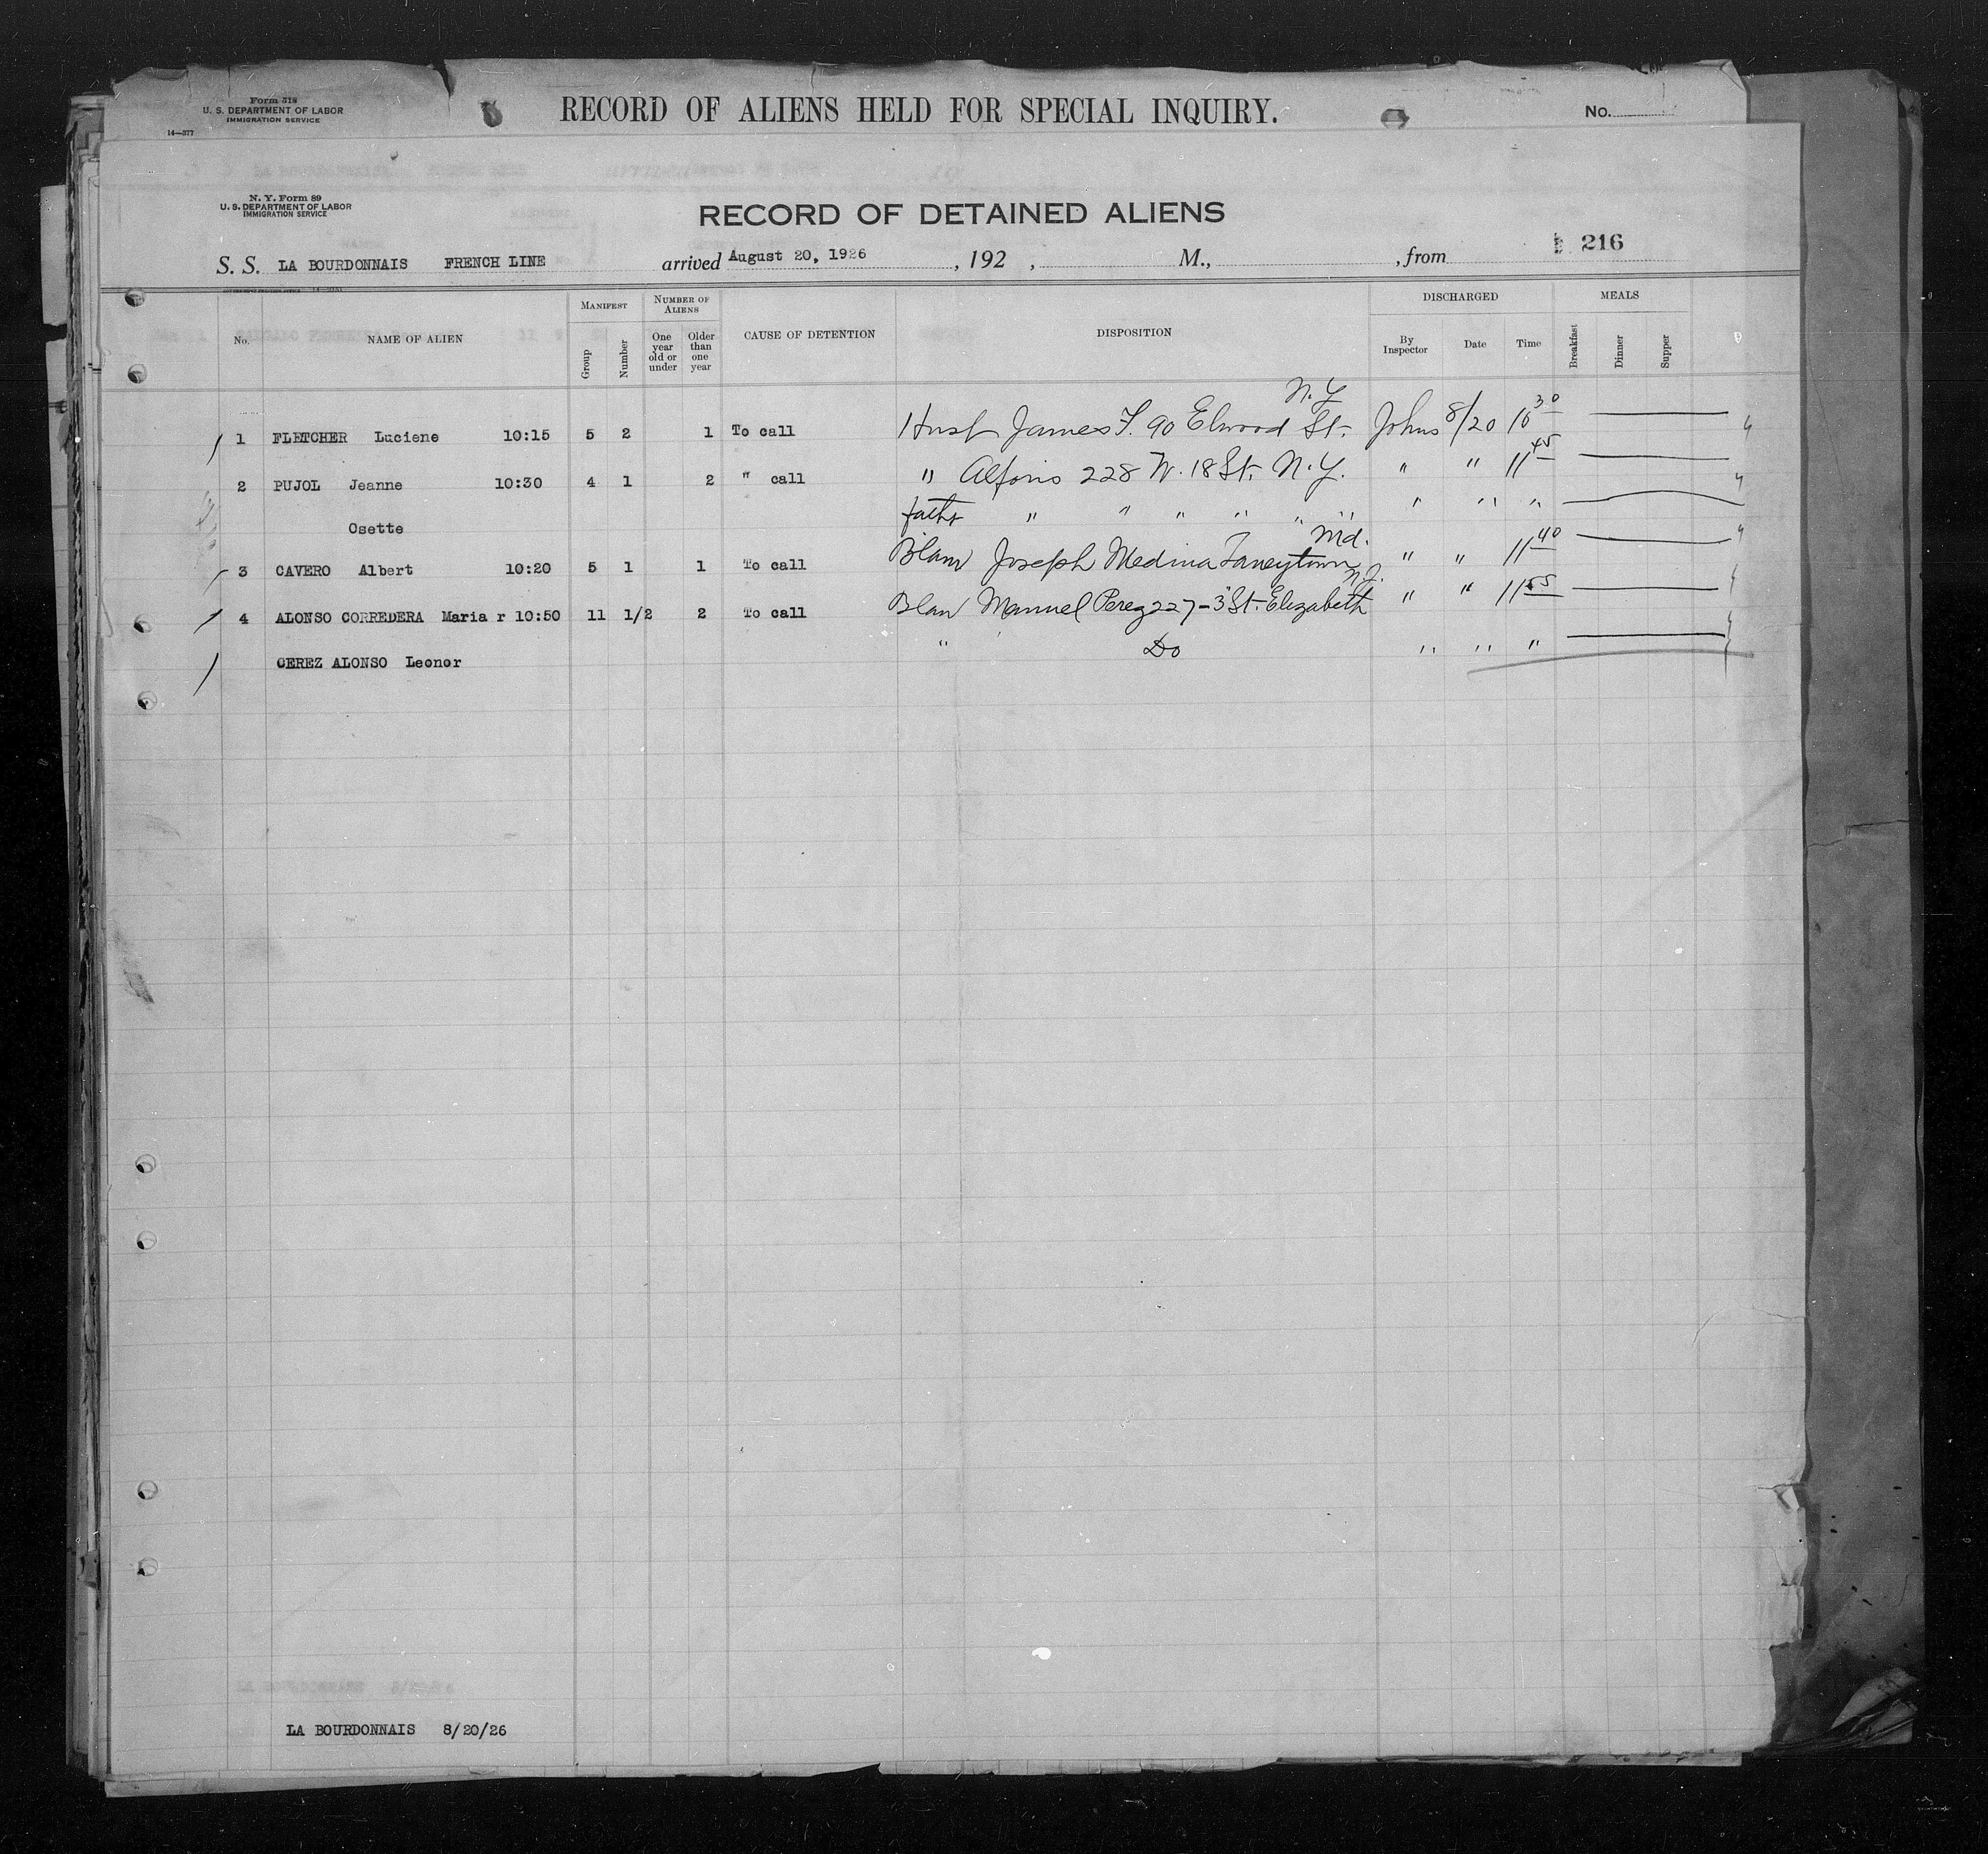 Form 518
U. S. DEPARTMENT OF LABOR
IMMIGRATION SERVICE
14—377
RECORD OF ALIENS HELD FOR SPECIAL INQUIRY.
No.
N. Y. Form 89
U. S. DEPARTMENT OF LABOR
IMMIGRATION SERVICE
RECORD OF DETAINED ALIENS
216
S. S. LA BOURDONNAIS FRENCH LINE arrived August 20, 1926, 192 , M., , from
No. NAME OF ALIEN MANIFEST Group Number NUMBER OF ALIENS One year old or under Older than one year CAUSE OF DETENTION DISPOSITION DISCHARGED By Inspector Date Time MEALS Breakfast Dinner Supper
N.Y.
1 FLETCHER Luciene 10:15 5 2 1 To call Husb James F. 90 Elwood St. Johns 8/20 10 30
2 PUJOL Jeanne 10:30 4 1 2 " call " Alfons 228 W. 18 St. N.Y. " " 11 45
Osette fath " " " " " " " "
Md.
3 CAVERO Albert 10:20 5 1 1 To call Blaw Joseph Medina Taneytown " " 11 40
N.J.
4 ALONSO CORREDERA Maria r 10:50 11 1/2 2 To call Blaw Manuel Perez 227-3 St. Elizabeth " " 11 55
CEREZ ALONSO Leonor " Do " " "
LA BOURDONNAIS 8/20/26